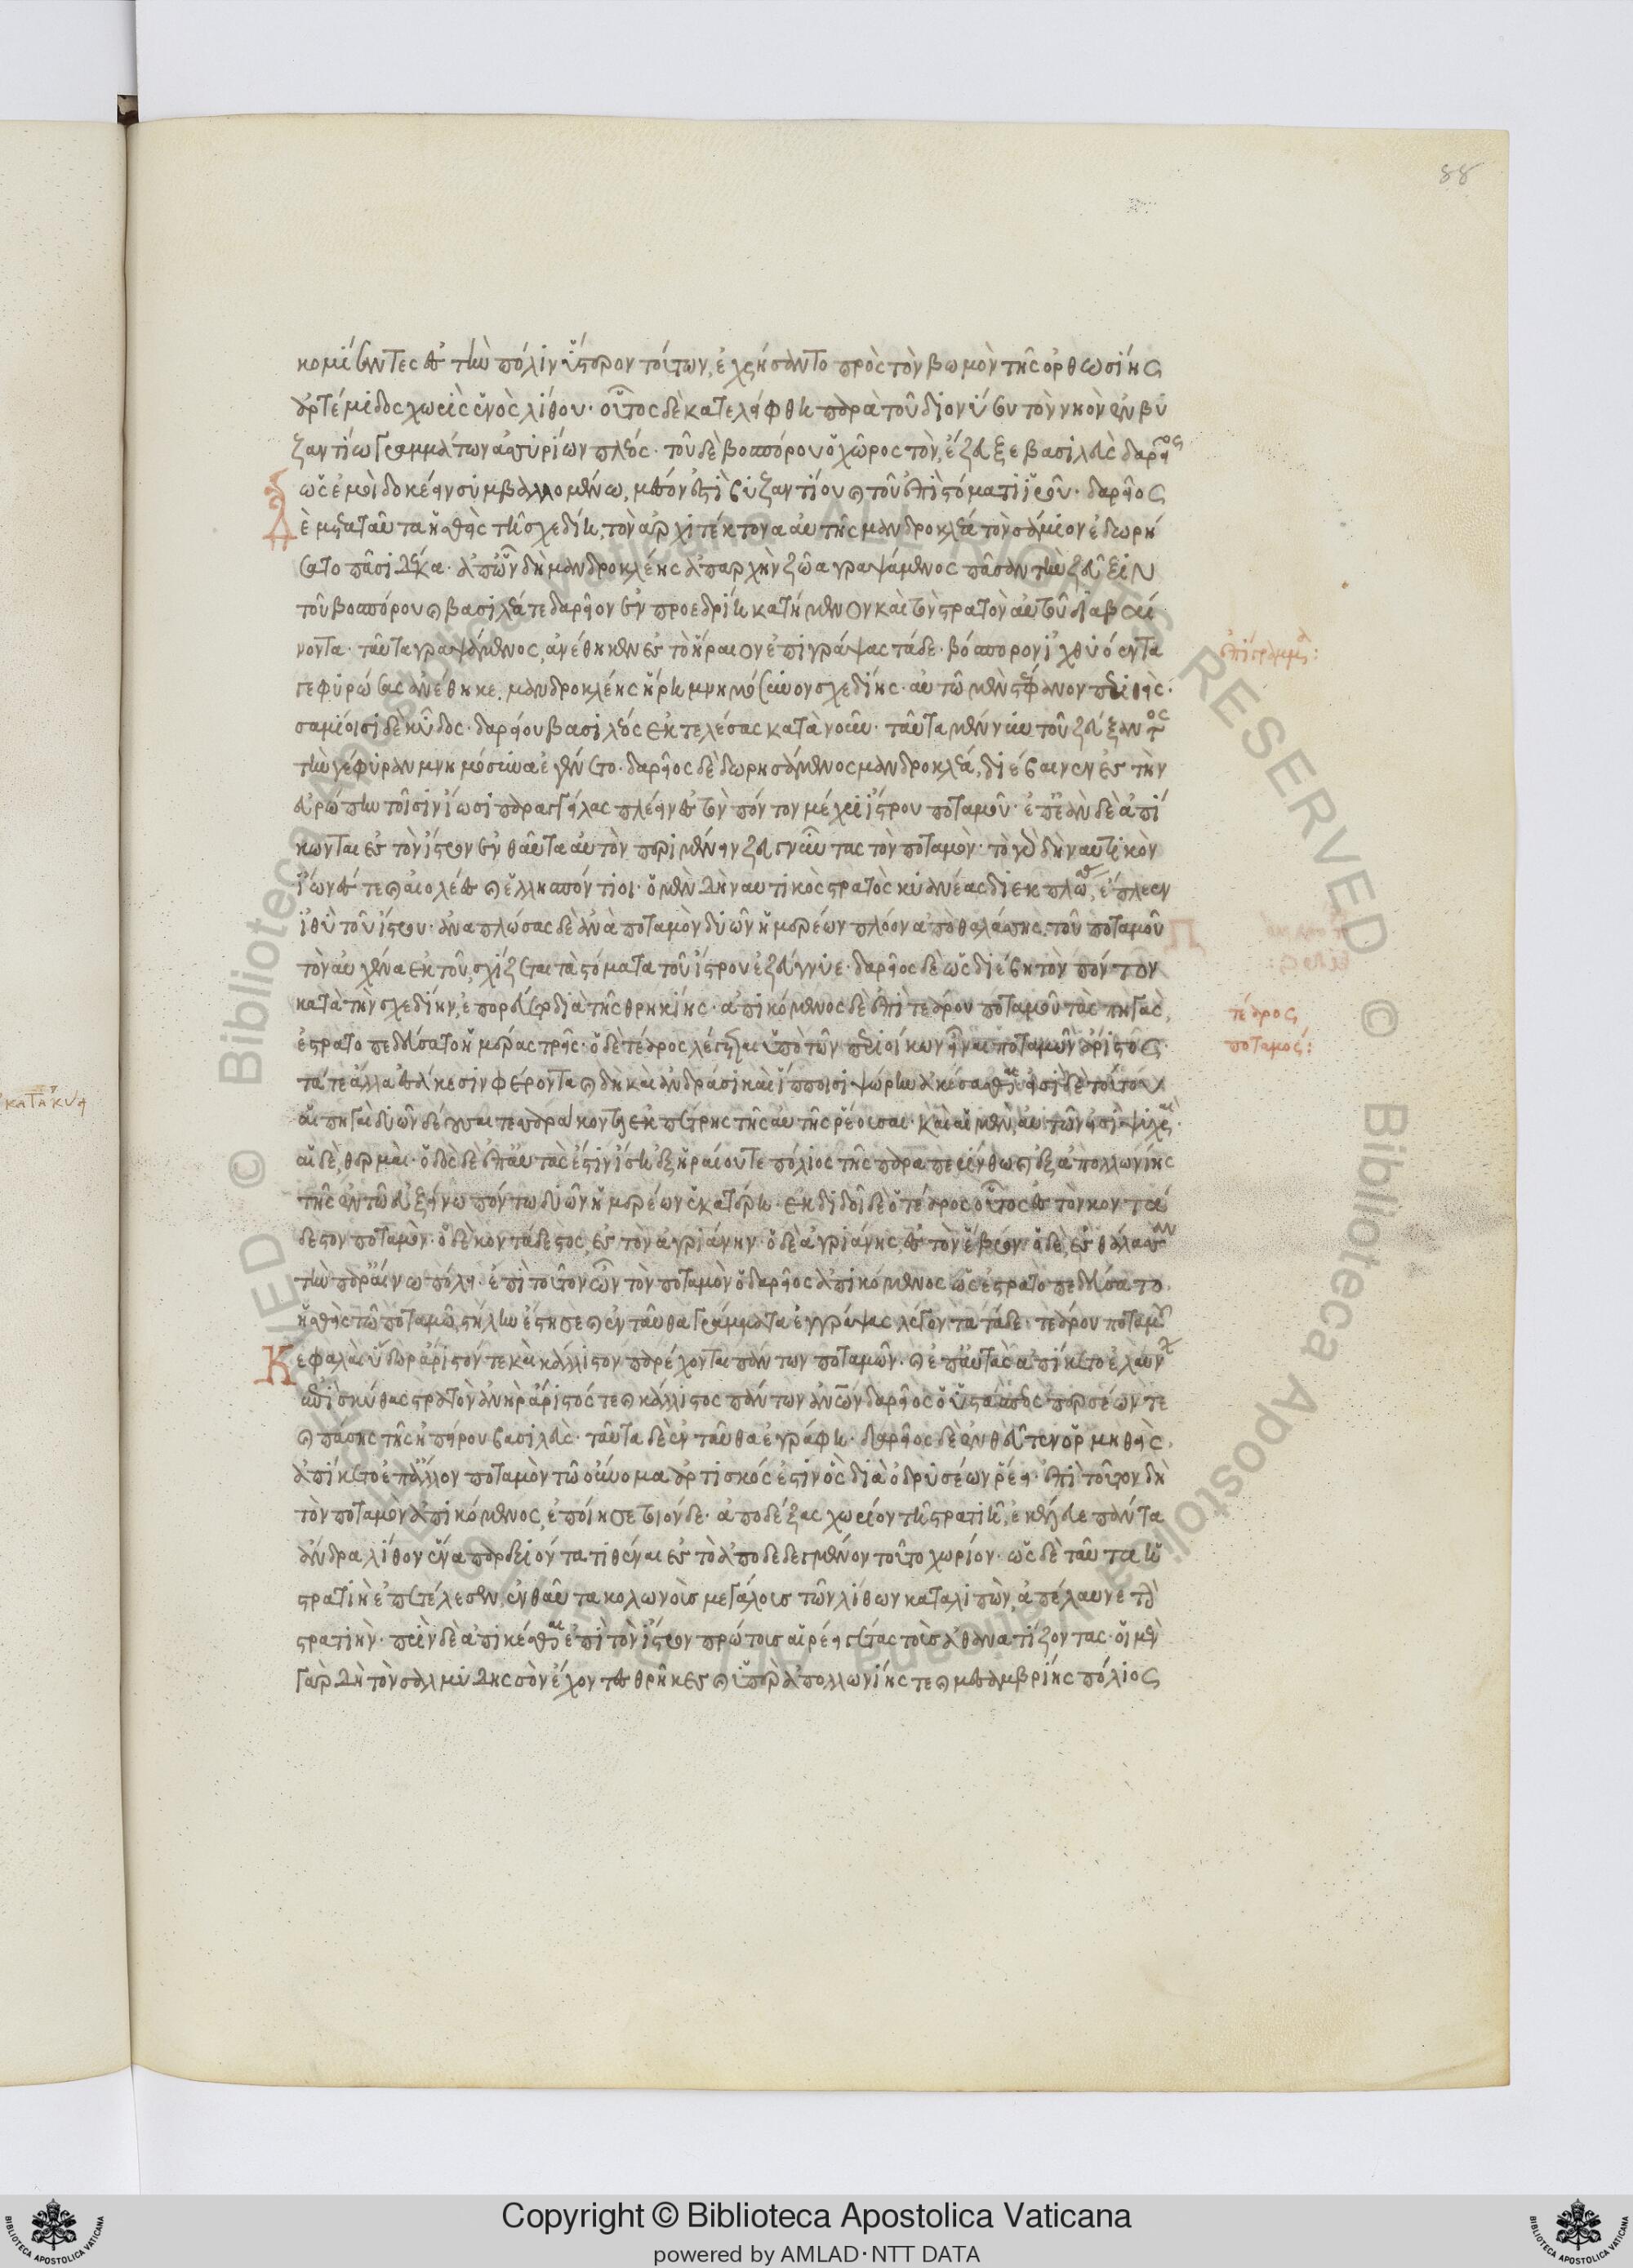 88
κομίσαντες ἐς τὴν πόλιν ὕστερον τούτων, ἐχρήσαντο πρὸς τὸν βωμὸν τῆς ὀρθωσίης
ἀρτέμιδος χωρὶς ἑνὸς λίθου· οὗτος δὲ κατελήφθη παρὰ τοῦ διονύσου τὸν νηὸν ἐν βυ
ζαντίω γραμμάτων ἀσσυρίων πλέος· τοῦ δὲ βοσπόρου ὁ χῶρος τὸν ἔζευξε βασιλεὺς δαρεῖος
ὡς ἐμοὶ δοκέειν συμβαλλομένω, μέσον ἐστὶ βυζαντίου καὶ τοῦ ἐπὶ στόματι ἱροῦ· δαρεῖος
δὲ μετὰ ταῦτα ἡσθεὶς τῆ σχεδίη, τὸν ἀρχιτέκτονα αὐτῆς μανδροκλέα τὸν σάμιον ἐδωρή
σατο πᾶσι δέκα· ἀπ' ὧν δὴ μανδροκλέης ἀπαρχὴν ζῶα γραψάμενος πᾶσαν τὴν ζεῦξιν
τοῦ βοσπόρου καὶ βασιλέα τε δαρεῖον ἐν προεδρίη κατήμενον καὶ τὸν στρατὸν αὐτοῦ διαβαί
νοντα· ταῦτα γραψάμενος, ἀνέθηκεν ἐς τὸ ἥραιον ἐπιγράψας τάδε· βόσπορον ἰχθυόεντα
γεφυρώσας ἀνέθηκε, μανδροκλέης ἥρη μνημόσυνον σχεδίης· αὐτῶ μὲν στέφανον περιθεὶς·
σαμίοισι δὲ κῦδος· δαρείου βασιλέος ἐκτελέσας κατὰ νοῦν· ταῦτα μέν νυν τοῦ ζεύξαντος
τὴν γέφυραν μνημόσυνα ἐγένετο· δαρεῖος δὲ δωρησάμενος μανδροκλέα, διέβαινεν ἐς τὴν
εὐρώπην τοῖσιν ἴωσι παραγγείλας πλέειν ἐς τὸν πόντον μέχρι ἴστρου ποταμοῦ· ἐπεὰν δὲ ἀπί
κωνται ἐς τὸν ἴστρον ἐνθαῦτα αὐτὸν περιμένειν ζευγνῦντας τὸν ποταμόν· τὸ γὰρ δὴ ναυτικὸν
ἴωνές τε καὶ αἰολέες καὶ ἑλλησπόντιοι· ὁ μὲν δὴ ναυτικὸς στρατὸς κυανέας διεκπλώσας, ἔπλεεν
ἰθὺ τοῦ ἴστρου· ἀναπλώσας δὲ ἀνὰ ποταμὸν δυῶν ἡμερέων πλόον ἀπὸ θαλάσσης, τοῦ ποταμοῦ
τὸν αὐχένα ἐκ τοῦ σχίζεται τὰ στόματα τοῦ ἴστρου ἐζεύγνυε· δαρεῖος δὲ ὡς διέβη τὸν πόντον
κατὰ τὴν σχεδίην, ἐπορεύετο διὰ τῆς θρηικίης· ἀπικόμενος δὲ ἐπὶ τεάρου ποταμοῦ τὰς πηγὰς,
ἐστρατοπεδεύσατο ἡμέρας τρεῖς· ὁ δὲ τέαρος λέγεται ὑπὸ τῶν περιοίκων εἶναι ποταμῶν ἄριστος
τά τε ἄλλα ἐς ἄκεσιν φέροντα καὶ δὴ καὶ ἀνδράσι καὶ ἵπποισι ψώρην ἀκέσασθαι· εἰσὶ δὲ τούτου
αἱ πηγαὶ δυῶν δέουσαι τεσσαράκοντα ἐκ πέτρης τῆς αὐτῆς ῥέουσαι· καὶ αἱ μὲν αὐτῶν εἰσὶ ψυχραὶ·
αἱ δὲ, θερμαί· ὁδὸς δὲ ἐπ' αὐτὰς ἐστὶν ἴση ἐξ ἡραίου τε πόλιος τῆς παρὰ περίνθω καὶ ἐξ ἀπολλωνίης
τῆς ἐν τῶ εὐξείνω πόντω δυῶν ἡμερέων ἑκατέρη· ἐκδιδοῖ δὲ ὁ τέαρος οὗτος ἐς τὸν κοντά
δεστον ποταμὸν· ὁ δὲ κοντάδεστος, ἐς τὸν ἀγριάνην· ὁ δὲ ἀγριάνης, ἐς τὸν ἕβρον· ὁ δὲ, ἐς θάλασσαν
τὴν παρ' αἴνω πόλει· ἐπὶ τοῦτον ὦν τὸν ποταμὸν ὁ δαρεῖος ἀπικόμενος ὡς ἐστρατοπεδεύσατο,
ἡσθεὶς τῶ ποταμῶ, στήλην ἔστησε καὶ ἐνταῦθα γράμματα ἐγγράψας λέγοντα τάδε· τεάρου ποταμοῦ
κεφαλαὶ ὕδωρ ἄριστόν τε καὶ κάλλιστον παρέχονται πάντων ποταμῶν· καὶ ἐπ' αὐτὰς ἀπίκετο ἐλαύνων
ἐπὶ σκύθας στρατὸν ἀνὴρ ἄριστός τε καὶ κάλλιστος πάντων ἀνθρώπων δαρεῖος ὁ ὑστάσπεος περσέων τε
καὶ πάσης τῆς ἠπείρου βασιλεύς· ταῦτα δὲ ἐνταῦθα ἐγράφη· δαρεῖος δὲ ἐνθεῦτεν ὁρμηθεὶς,
ἀπίκετο ἐπ' ἄλλον ποταμὸν τῶ οὔνομα ἀρτισκός ἐστιν ὃς διὰ ὀδρυσέων ῥέει· ἐπὶ τοῦτον δὴ
τὸν ποταμὸν ἀπικόμενος, ἐποίησε τοιόνδε· ἀποδέξας χωρίον τῆ στρατιῆ, ἐκέλευε πάντα
ἄνδρα λίθον ἕνα παρεξιόντα τιθέναι ἐς τὸ ἀποδεδεγμένον τοῦτο χωρίον· ὡς δὲ ταῦτα ἡ
στρατιὴ ἐπετέλεσεν, ἐνθαῦτα κολωνοὺς μεγάλους τῶν λίθων καταλιπὼν, ἀπέλαυνε τὴν
στρατιήν· πρὶν δὲ ἀπικέσθαι ἐπὶ τὸν ἴστρον πρώτους αἱρέει γέτας τοὺς ἀθανατίζοντας· οἱ μὲν
γὰρ δὴ τὸν σαλμυδησσὸν ἔχοντες θρήικες καὶ ὑπὲρ ἀπολλωνίης τε καὶ μεσαμβρίης πόλιος
ἐπίγραμμα:
τέαρος
ποταμός:
Copyright © Biblioteca Apostolica Vaticana
powered by AMLAD·NTT DATA